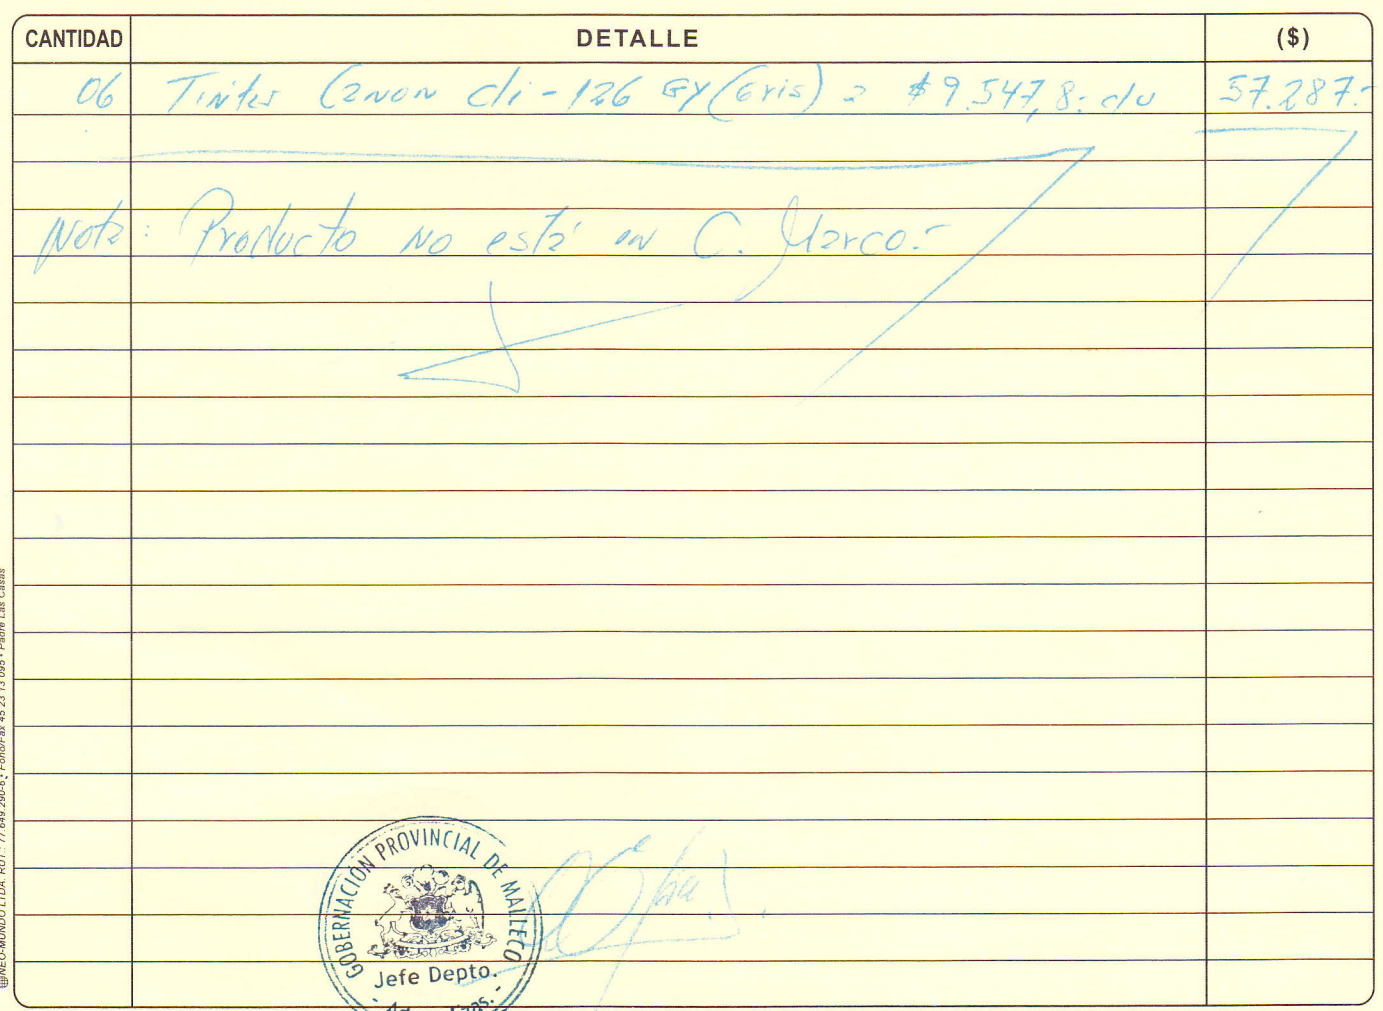 CANTIDAD DETALLE ($)
06 Tintas Canon cli-126 GY (Gris) a $9.547,8.- c/u 57.287.-
Nota: Producto no está en C. Marco.-
GOBERNACIÓN PROVINCIAL DE MALLECO
Jefe Depto.
NEO-MUNDO LTDA. RUT.: 77.649.290-6 • Fono/Fax 45 23 13 095 • Padre Las Casas